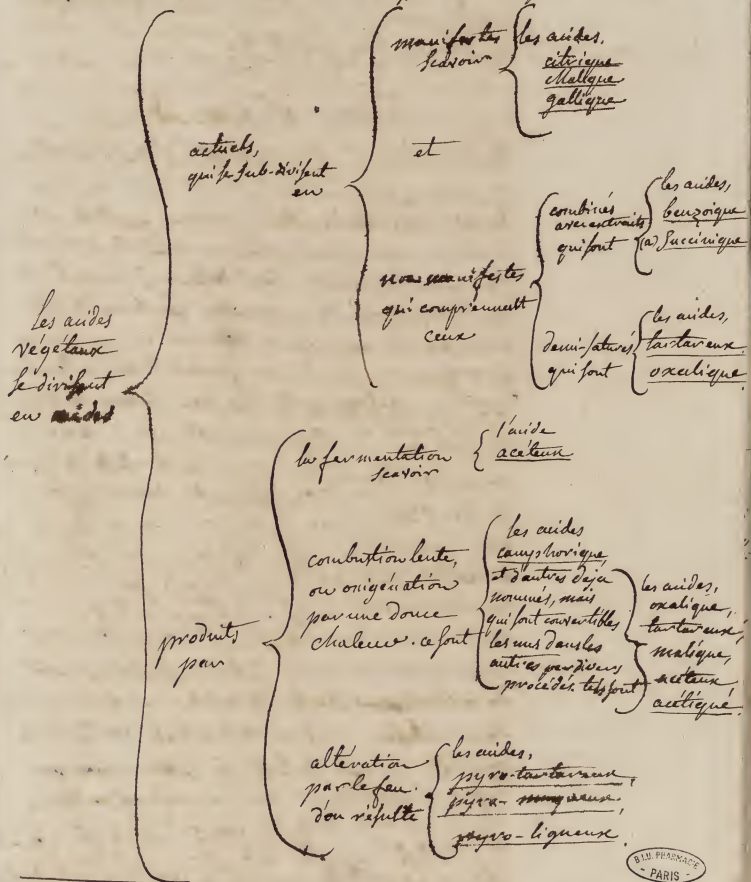 les acides
végétaux
se divisent
en acides
actuels,
qui se sub-divisent
en
manifestes
scavoir
les acides,
citrique
Malique
gallique
et
non manifestes
qui comprennent
ceux
combinés
avec extraits
qui sont
les acides,
benzoique
(a) Succinique
demi-saturés
qui sont
les acides,
tartareux
oxalique
produits
par
la fermentation
scavoir
l'acide
acéteux
combustion lente,
ou oxigénation
par une douce
chaleur. ce sont
les acides
camphorique
et d'autres déja
nommés, mais
qui sont convertibles
les uns dans les
autres par divers
procédés. tels sont
les acides,
oxalique,
tartareux,
malique,
acéteux
acétique.
altération
par le feu.
d'ou résulte
les acides,
pyro-tartareux,
pyro-muqueux,
pyro-ligneux.
B.I.U. PHARMACIE
- PARIS -